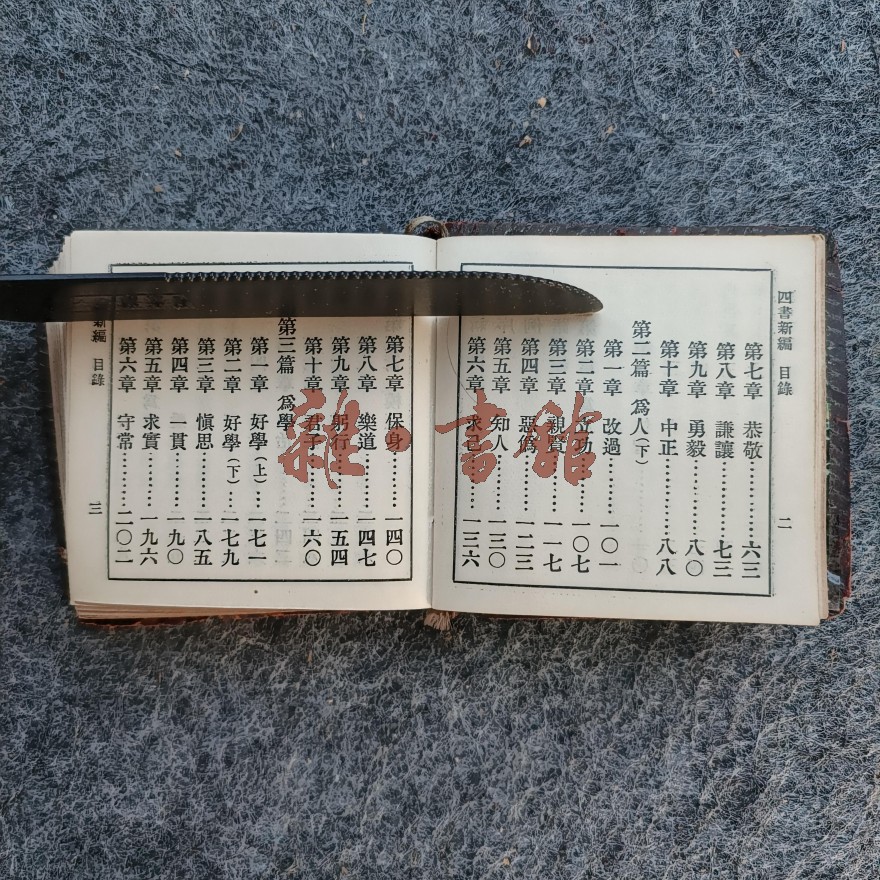 四書新編 目錄
二
第七章 恭敬…………六三
第八章 謙讓…………七三
第九章 勇毅…………八〇
第十章 中正…………八八
第二篇 爲人(下)
第一章 改過…………一〇一
第二章 立功…………一〇七
第三章 親賢…………一一七
第四章 惡僞…………一二三
第五章 知人…………一三〇
第六章 求己…………一三六
第七章 保身…………一四〇
第八章 樂道…………一四七
第九章 躬行…………一五四
第十章 君子…………一六〇
第三篇 爲學
第一章 好學(上)…………一七一
第二章 好學(下)…………一七九
第三章 愼思…………一八五
第四章 一貫…………一九〇
第五章 求實…………一九六
第六章 守常…………二〇二
新編 目錄
三
雜·書館